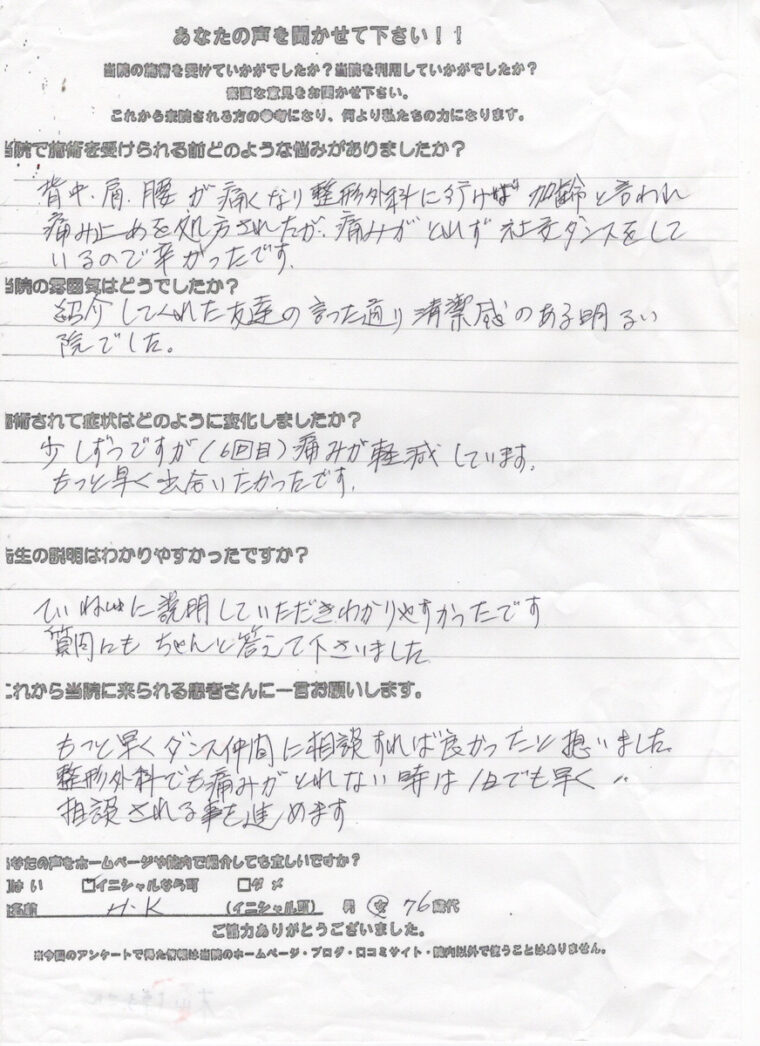 あなたの声を聞かせて下さい！！
当院の施術を受けていかがでしたか？当院を利用していかがでしたか？
素直な意見をお聞かせ下さい。
これから来院される方の参考になり、何より私たちの力になります。
当院で施術を受けられる前どのような悩みがありましたか？
背中、肩、腰が痛くなり整形外科に行けば加齢と言われ
痛み止めを処方されたが、痛みがとれず社交ダンスをして
いるので辛かったです。
当院の雰囲気はどうでしたか？
紹介してくれた友達の言った通り清潔感のある明るい
院でした。
施術されて症状はどのように変化しましたか？
少しずつですが（6回目）痛みが軽減しています。
もっと早く出合いたかったです。
先生の説明はわかりやすかったですか？
ていねいに説明していただきわかりやすかったです
質問にもちゃんと答えて下さいました。
これから当院に来られる患者さんに一言お願いします。
もっと早くダンス仲間に相談すれば良かったと思いました。
整形外科でも痛みがとれない時は1日でも早く
相談される事を進めます
あなたの声をホームページや院内で紹介しても宜しいですか？
□はい □イニシャルなら可 □ダメ
お名前 H.K （イニシャル可） 男 女 76歳代
ご協力ありがとうございました。
※今回のアンケートで得た情報は当院のホームページ・ブログ・口コミサイト・院内以外で使うことはありません。